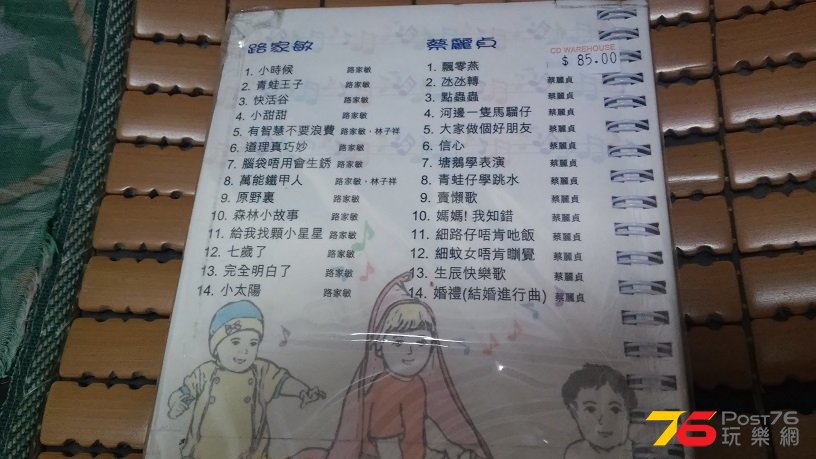 路家敏
1. 小時候 路家敏
2. 青蛙王子 路家敏
3. 快活谷 路家敏
4. 小甜甜 路家敏
5. 有智慧不要浪費 路家敏·林子祥
6. 道理真巧妙 路家敏
7. 腦袋唔用會生銹 路家敏
8. 萬能鐵甲人 路家敏·林子祥
9. 原野裏 路家敏
10. 森林小故事 路家敏
11. 給我找顆小星星 路家敏
12. 七歲了 路家敏
13. 完全明白了 路家敏
14. 小太陽 路家敏
蔡麗貞
1. 飄零燕
2. 氹氹轉 蔡麗貞
3. 點蟲蟲 蔡麗貞
4. 河邊一隻馬騮仔 蔡麗貞
5. 大家做個好朋友 蔡麗貞
6. 信心 蔡麗貞
7. 塘鵝學表演 蔡麗貞
8. 青蛙仔學跳水 蔡麗貞
9. 賣懶歌 蔡麗貞
10. 媽媽! 我知錯 蔡麗貞
11. 細路仔唔肯吔飯 蔡麗貞
12. 細蚊女唔肯瞓覺 蔡麗貞
13. 生辰快樂歌 蔡麗貞
14. 婚禮(結婚進行曲) 蔡麗貞
CD WAREHOUSE
$ 85.00
B·S
76 POST76
玩樂網